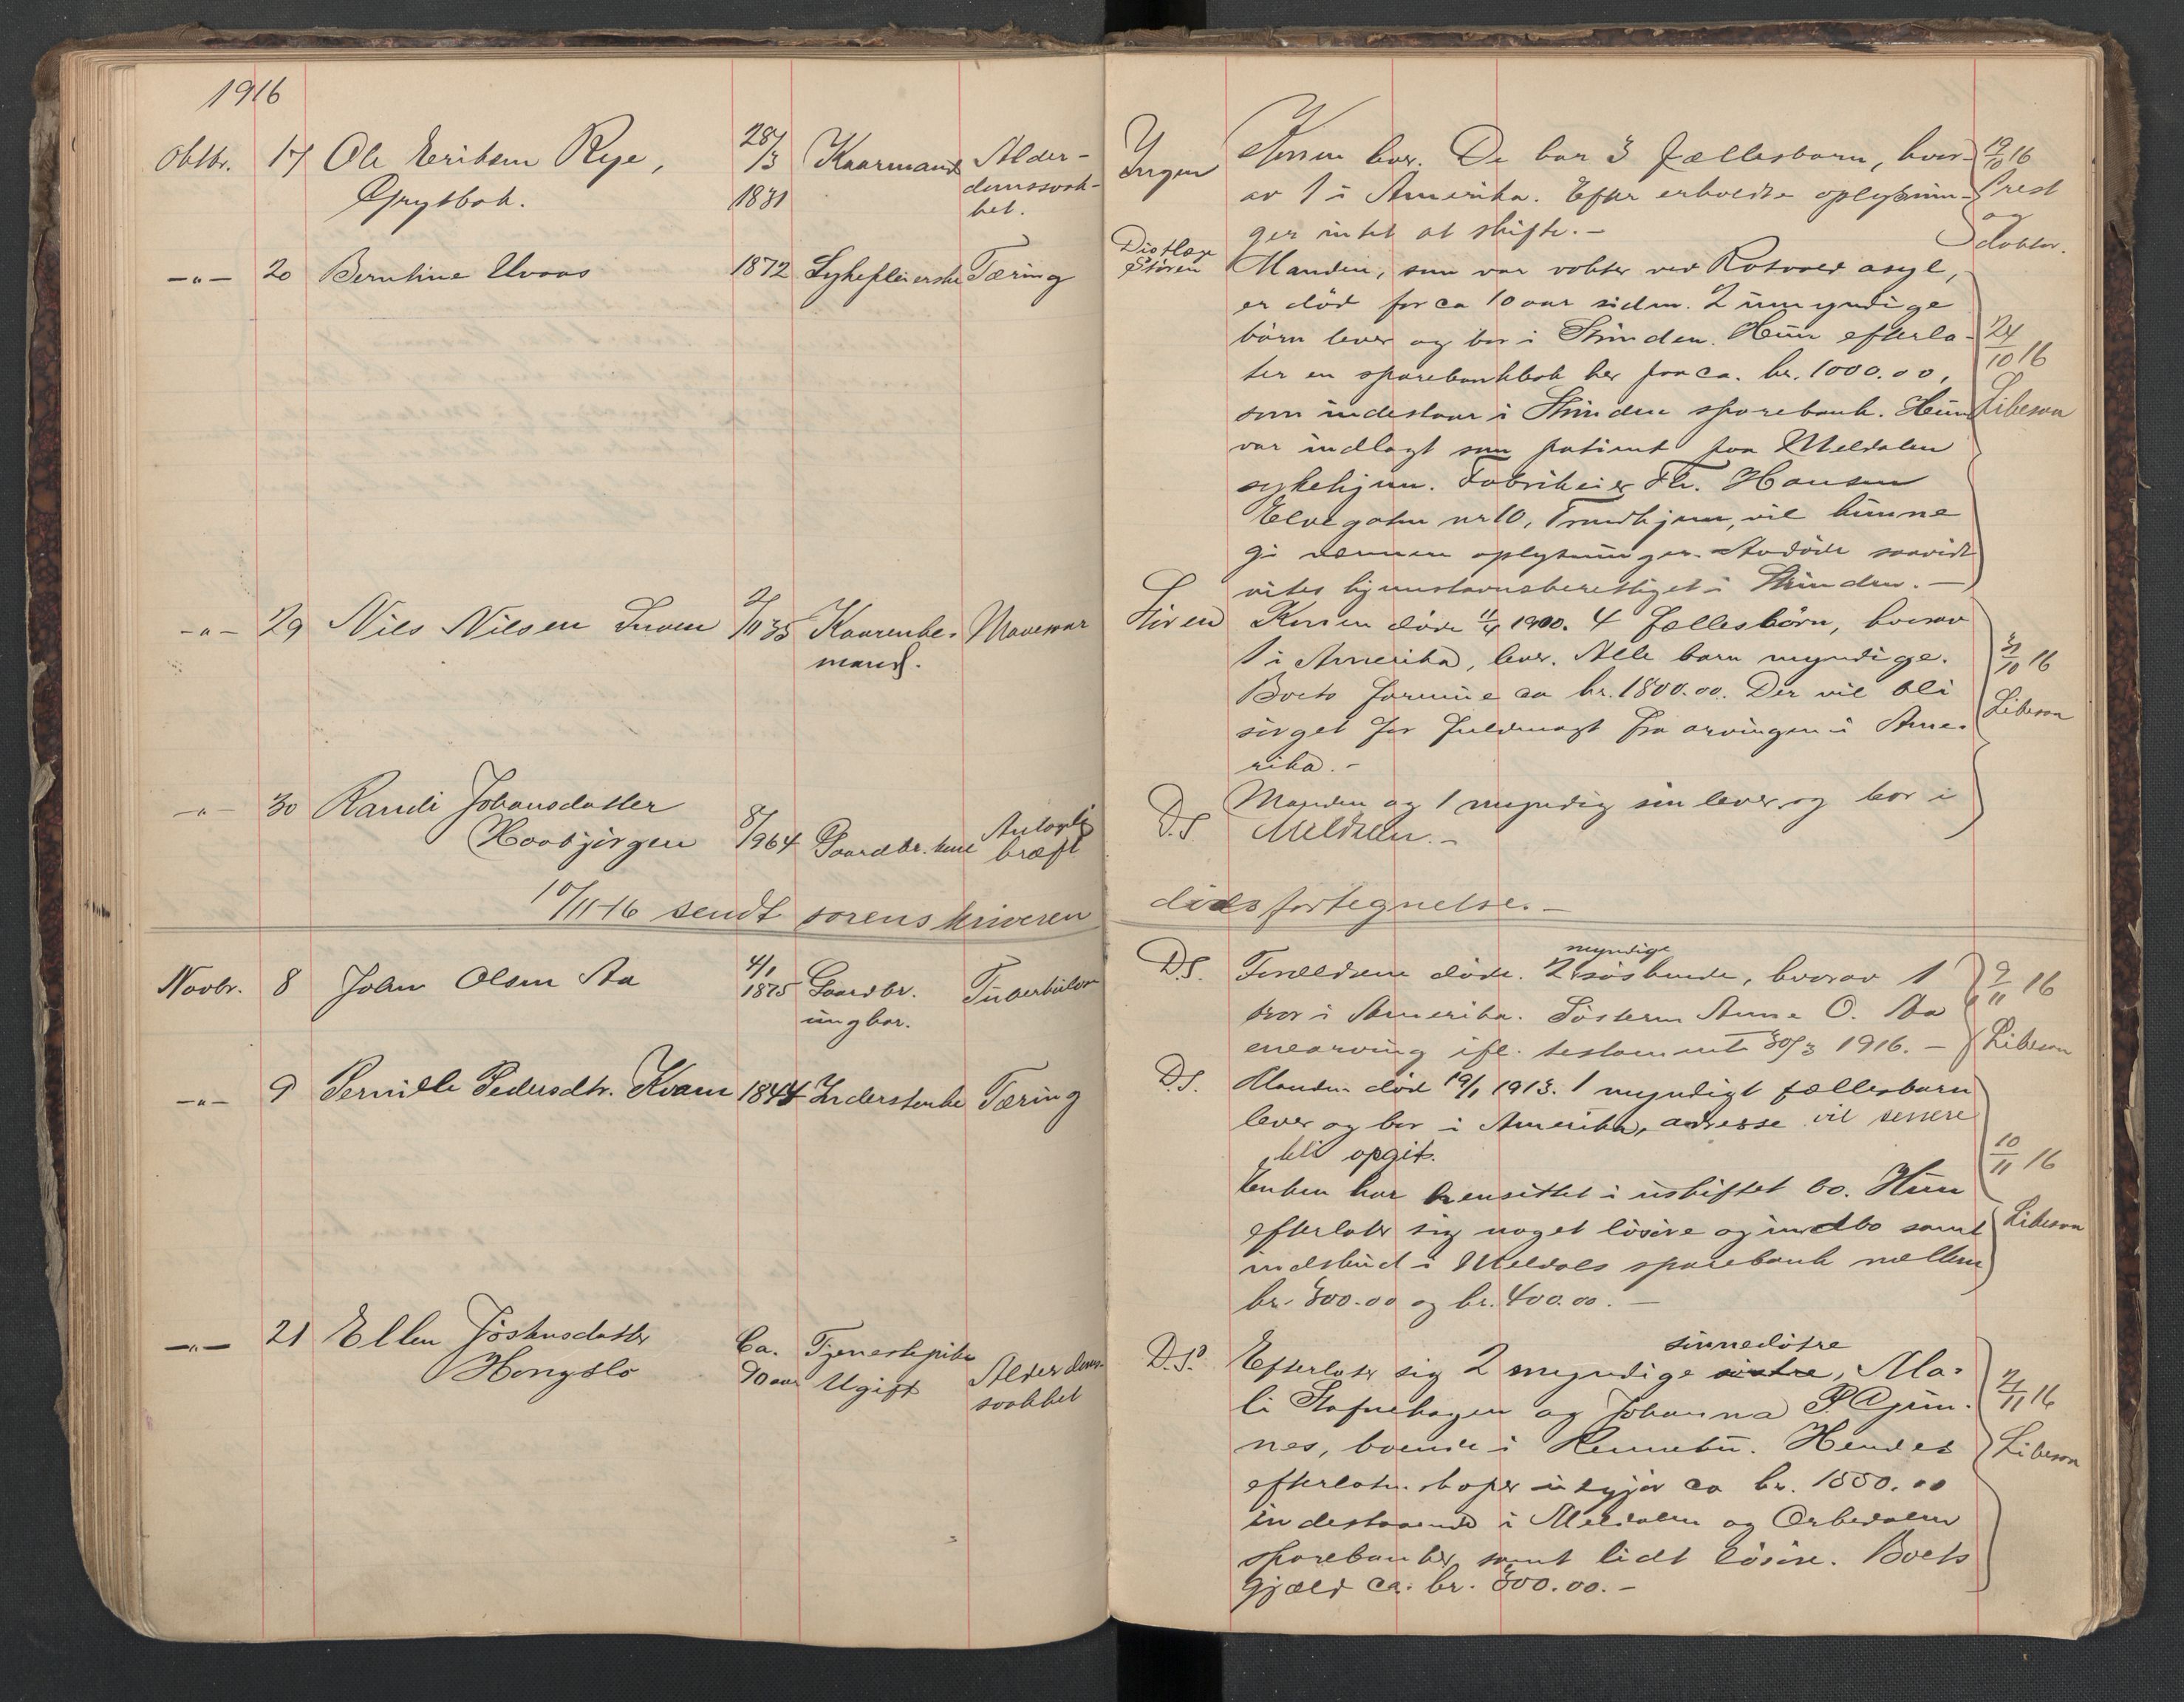 1916
Oktbr. 17 Ole Eriksen Rye, 28/3 Kaarmand Alder-
Grytbak. 1831 domssvak-
het.
-"- 20 Berntine Uvaas 1872 Sykepleierske Tæring
-"- 29 Nils Nilsen 2/11 35 Kaarenke- Mavesaar
mand.
-"- 30 Randi Johansdatter
Hoobjørgen 8/1964 Gaardbr. kone Antagelig
kræft
10/11 16 sendt sorenskriveren
Novbr. 8 John Olsen Aa 4/1
1875 Gaardbr. Tuberkulose
ungkar.
-"- 9 Pernille Pedersdtr. Kvam 1844 Inderstenke Tæring
-"- 21 Ellen Jostensdatter Ca. Tjenestepike
Hongslo 90 aar Ugift Alderdoms-
svakhet
Ingen Konen lever. De har 3 fællesbarn, hvor- 19/10 16
av 1 i Amerika. Efter erholdte oplysnin- Prest
ger intet at skifte.- og
doktor.
Distlæge
Støren Manden, som var vokter ved Rotvold asyl,
er död for ca 10 aar siden. 2 umyndige
börn lever og bor i Strinden. Hun efterla- 24/10 16
ter en sparebankbok her paa ca. kr. 1000.00,
som indestaar i Strinden sparebank. Hun Libeson
var indlagt som patient paa Meldalen
sykehjem. Fabrikeier Th. Hansen
Elvegaten nr 10, Trondhjem, vil kunne
gi nærmere oplysninger. Avdöde saavidt
vites hjemstavnsberettiget i Strinden.-
Konen döde 11/4 1900. 4 fællesbörn, hvorav
1 i Amerika, lever. Alle barn myndige. 31/10 16
Boets formue ca kr. 1800.00. Der vil bli
sörget for fuldmagt fra arvingen i Ame- Libeson
rika.-
D.S. Manden og 1 myndig sön lever og bor i
Meldalen.-
dödsfortegnelse.-
myndige
D.S. Forældrene döde. 2 söskende, hvorav 1 9/11 16
bor i Amerika. Sösteren Anne O. Aa
enearving ifl. testamente 30/3 1916.- Libeson
D.S. Manden död 19/1 1913. 1 myndigt fællesbarn
lever og bor i Amerika, adresse vil senere
bli opgit. 10/11 16
Enken har hensittet i uskiftet bo. Hun
efterlater sig noget lösöre og indbo samt Libeson
indskud i Meldals sparebank mellem
kr. 300.00 og kr. 400.00.-
sönnedötre
D.S. Efterlater sig 2 myndige söstre, Ma-
li Stafnehagen og Johanna P. Gjun- 21/11 16
nes, boende i Rennebu. Hendes Libeson
efterladenskaper utgjör ca kr. 1550.00
indestaaende i Meldalen og Orkedalen
sparebanker samt lidt lösöre. Boets
gjæld ca. kr. 300.00.-